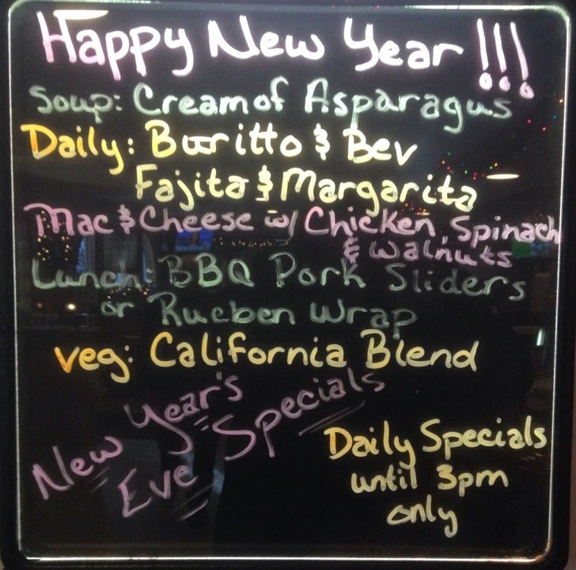 Happy New Year!!!
Soup: Cream of Asparagus
Daily: Buritto & Bev
Fajita & Margarita
Mac & Cheese w/ Chicken, Spinach
& Walnuts
Lunch: BBQ Pork Sliders
or Rueben Wrap
Veg: California Blend
New Year's
Eve Specials
Daily Specials
until 3pm
only